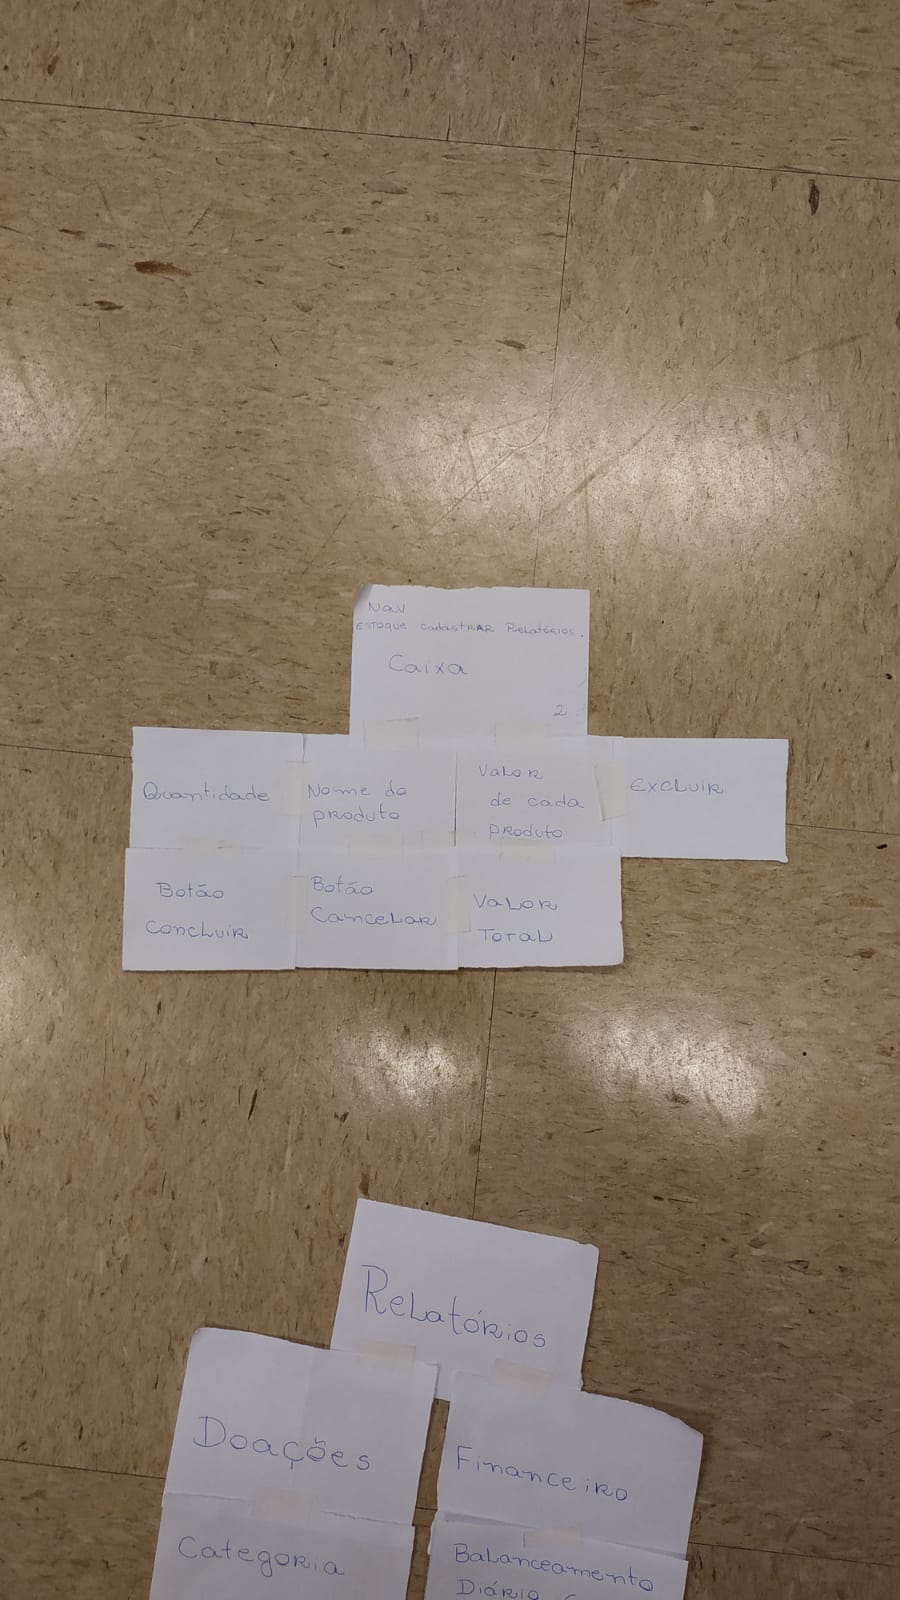 Nav
Estoque Cadastrar Relatórios.
Caixa
2
Quantidade
Nome do
produto
Valor
de cada
produto
Excluir
Botão
Concluir
Botão
Cancelar
Valor
Total
Relatórios
Doações
Financeiro
Categoria
Balanceamento
Diário